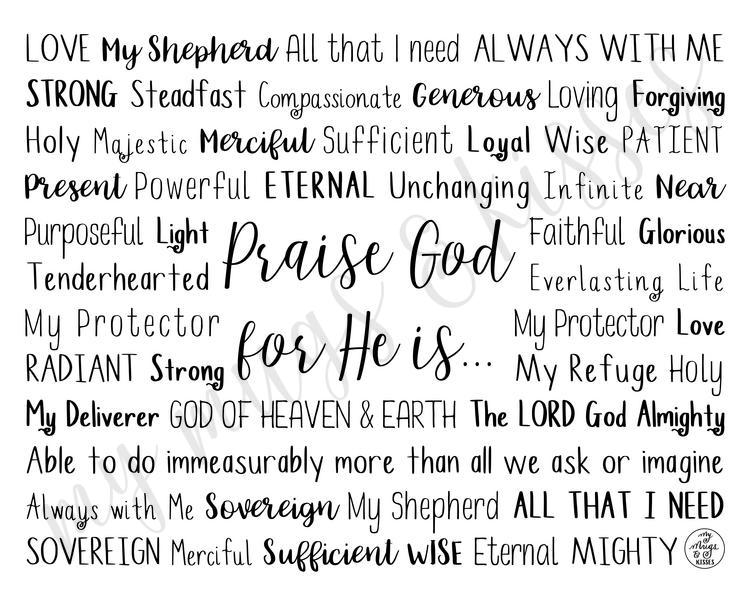 LOVE My Shepherd All that I need ALWAYS WITH ME
STRONG Steadfast Compassionate Generous Loving Forgiving
Holy Majestic Merciful Sufficient Loyal Wise PATIENT
Present Powerful ETERNAL Unchanging Infinite Near
Purposeful Light
Tenderhearted
Praise God
Faithful Glorious
Everlasting Life
My Protector
RADIANT Strong
for He is...
My Protector Love
My Refuge Holy
My Deliverer GOD OF HEAVEN & EARTH The LORD God Almighty
Able to do immeasurably more than all we ask or imagine
Always with Me Sovereign My Shepherd ALL THAT I NEED
SOVEREIGN Merciful Sufficient WISE Eternal MIGHTY
my
Mugs
&
KISSES
my mugs & kisses